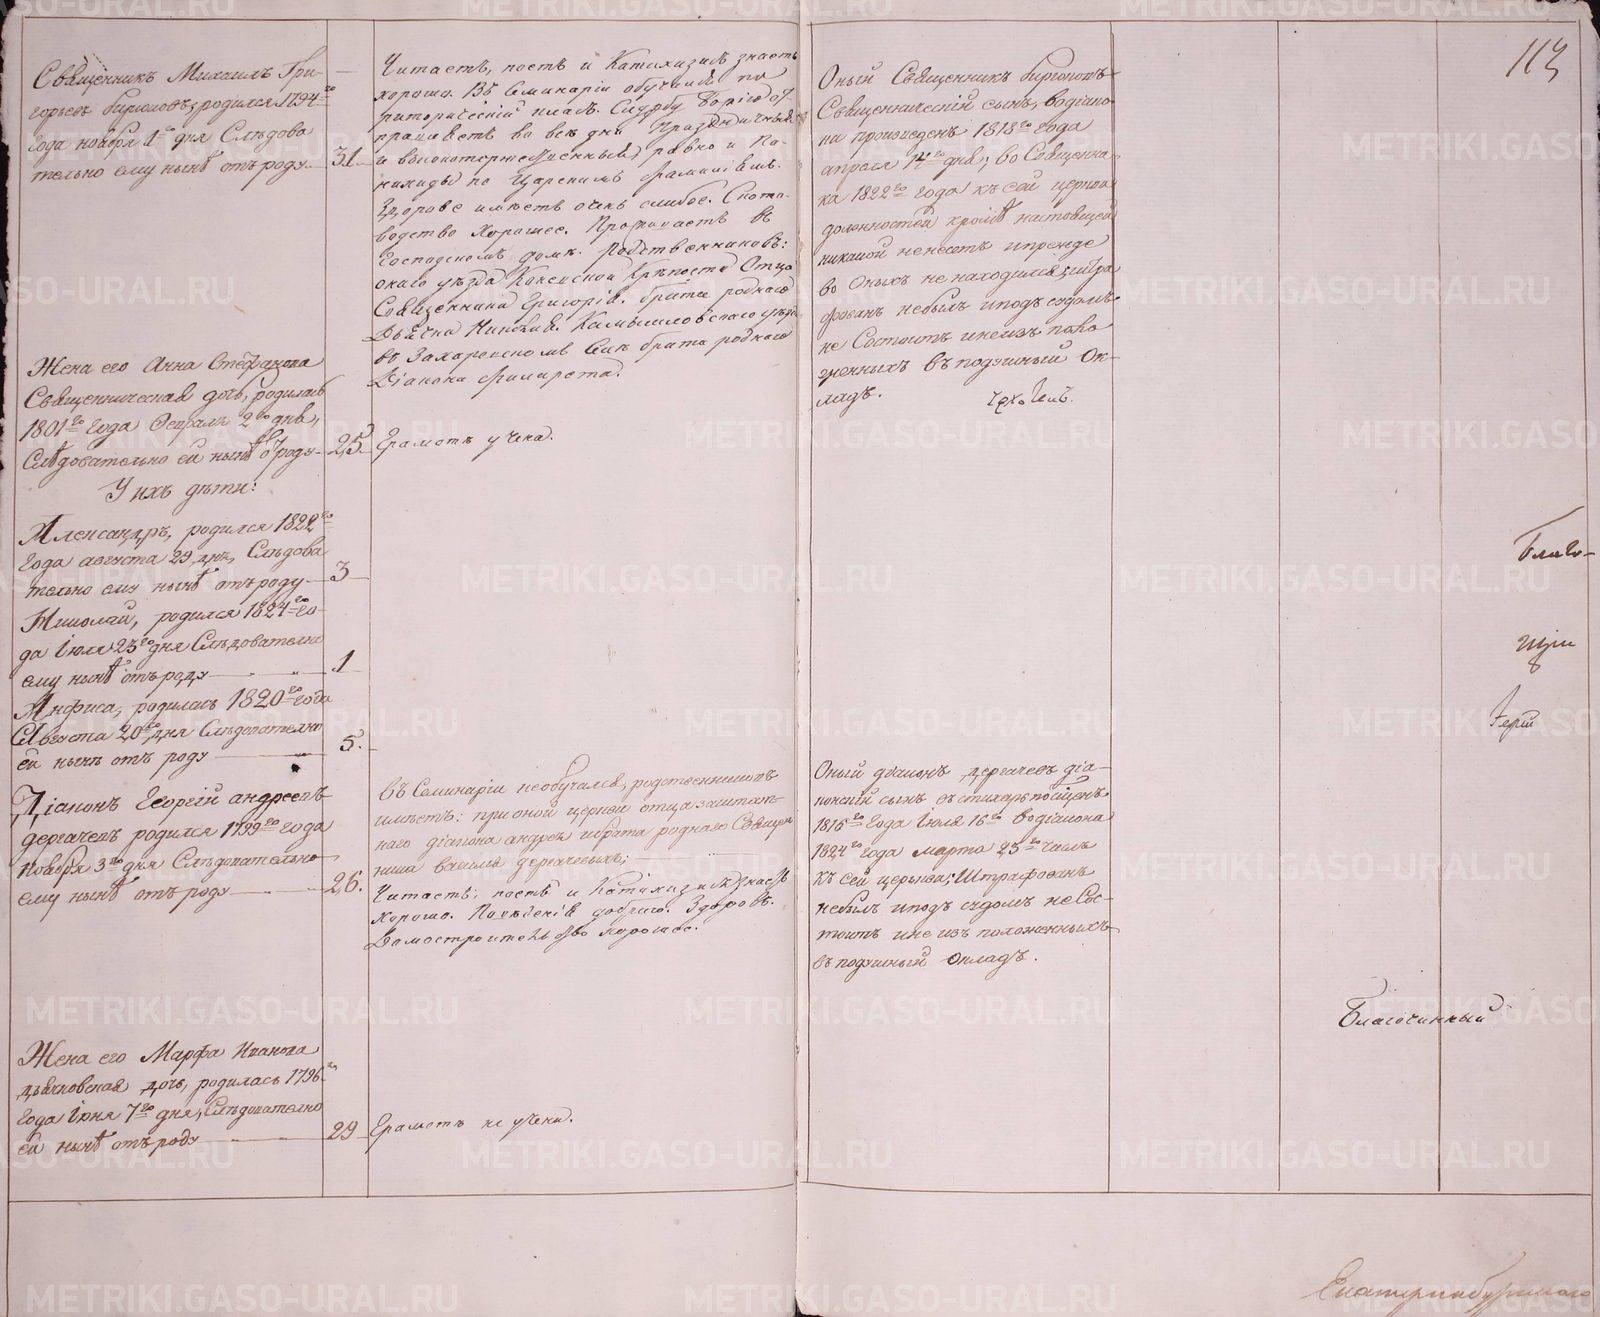 113
Священникъ Михаилъ Гри-
горьевъ Бирюковъ, родился 1794го
года ноября 1го дня Слѣдова
тельно ему нынѣ отъ роду — 31.
Читаетъ, поетъ и Катихизисъ знаетъ
хорошо. Въ Семинаріи обучился по
риторическій классъ. Службу Божію от-
правляетъ во всѣ дни Праздничныя
и высокоторжественныя, равно и Па-
нихиды по Царскимъ Фамиліямъ.
Здоровье имѣетъ очень слабое. Ското-
водство Хорошее. Проживаетъ въ
Господскомъ домѣ. Родственниковъ:
онаго уѣзда Крѣпости Отца
Священника Григорія. брата роднаго
Дьячка Камышловскаго уѣзда
въ Захаровскомъ Селѣ брата роднаго
Діакона Филарета.
Оный Священникъ Бирюковъ
Священническій сынъ, во діако-
на произведенъ 1818го года
апреля 14го дня; во Священни-
ка 1822го года къ сей церкви
должностей кромѣ настоящей
никакой не несетъ и прежде
во Оныхъ не находился; штра
фованъ небылъ и подъ судомъ
не Состоитъ и не изъ поло
женныхъ въ подушный Ок-
ладъ.
Жена его Анна Стефанова
Священническая дочь, родилась
1801го года Февраля 2го дня,
Слѣдовательно ей нынѣ отъ роду — 25. Грамотѣ учена.
У ихъ дѣти:
Александръ, родился 1822го
года августа 29 дня, Слѣдова
тельно ему нынѣ отъ роду — 3
Николай, родился 1824го го-
да Іюля 25го дня Слѣдователно
ему нынѣ отъ роду — 1
Анфиса, родилась 1820го года
Августа 20го дня Слѣдователно
ей нынѣ отъ роду — 5.
Діаконъ Георгій Андреевъ
Дергачевъ родился 1799го года
Ноября 3го дня Слѣдователно
ему нынѣ отъ роду — 26.
въ Семинаріи необучался, родственниковъ
имѣетъ: при оной церкви отца заштат-
наго діакона андрея и брата роднаго Священ
ника василія дергачевыхъ;
Читаетъ, поетъ и Катихизисъ знаетъ
хорошо. Поведенія добраго. Здоровъ.
Домостроительство хорошее.
Оный діаконъ дергачевъ діа-
конскій сынъ въ стихарь посвященъ
1816го года Іюля 16го во діакона
1824го года марта 25го числа
къ сей церькви; Штрафованъ
небылъ и подъ судомъ не Сос-
тоитъ и не изъ положенныхъ
въ подушный Окладъ.
Жена его Марфа Иванова
дьячковская дочь, родилась 1796го
года Іюня 7го дня, Слѣдователно
ей нынѣ отъ роду — 29 Грамотѣ не учена.
Благо-
Іерей
Благочинный
Екатеринбургскаго
METRIKI.GASO-URAL.RU